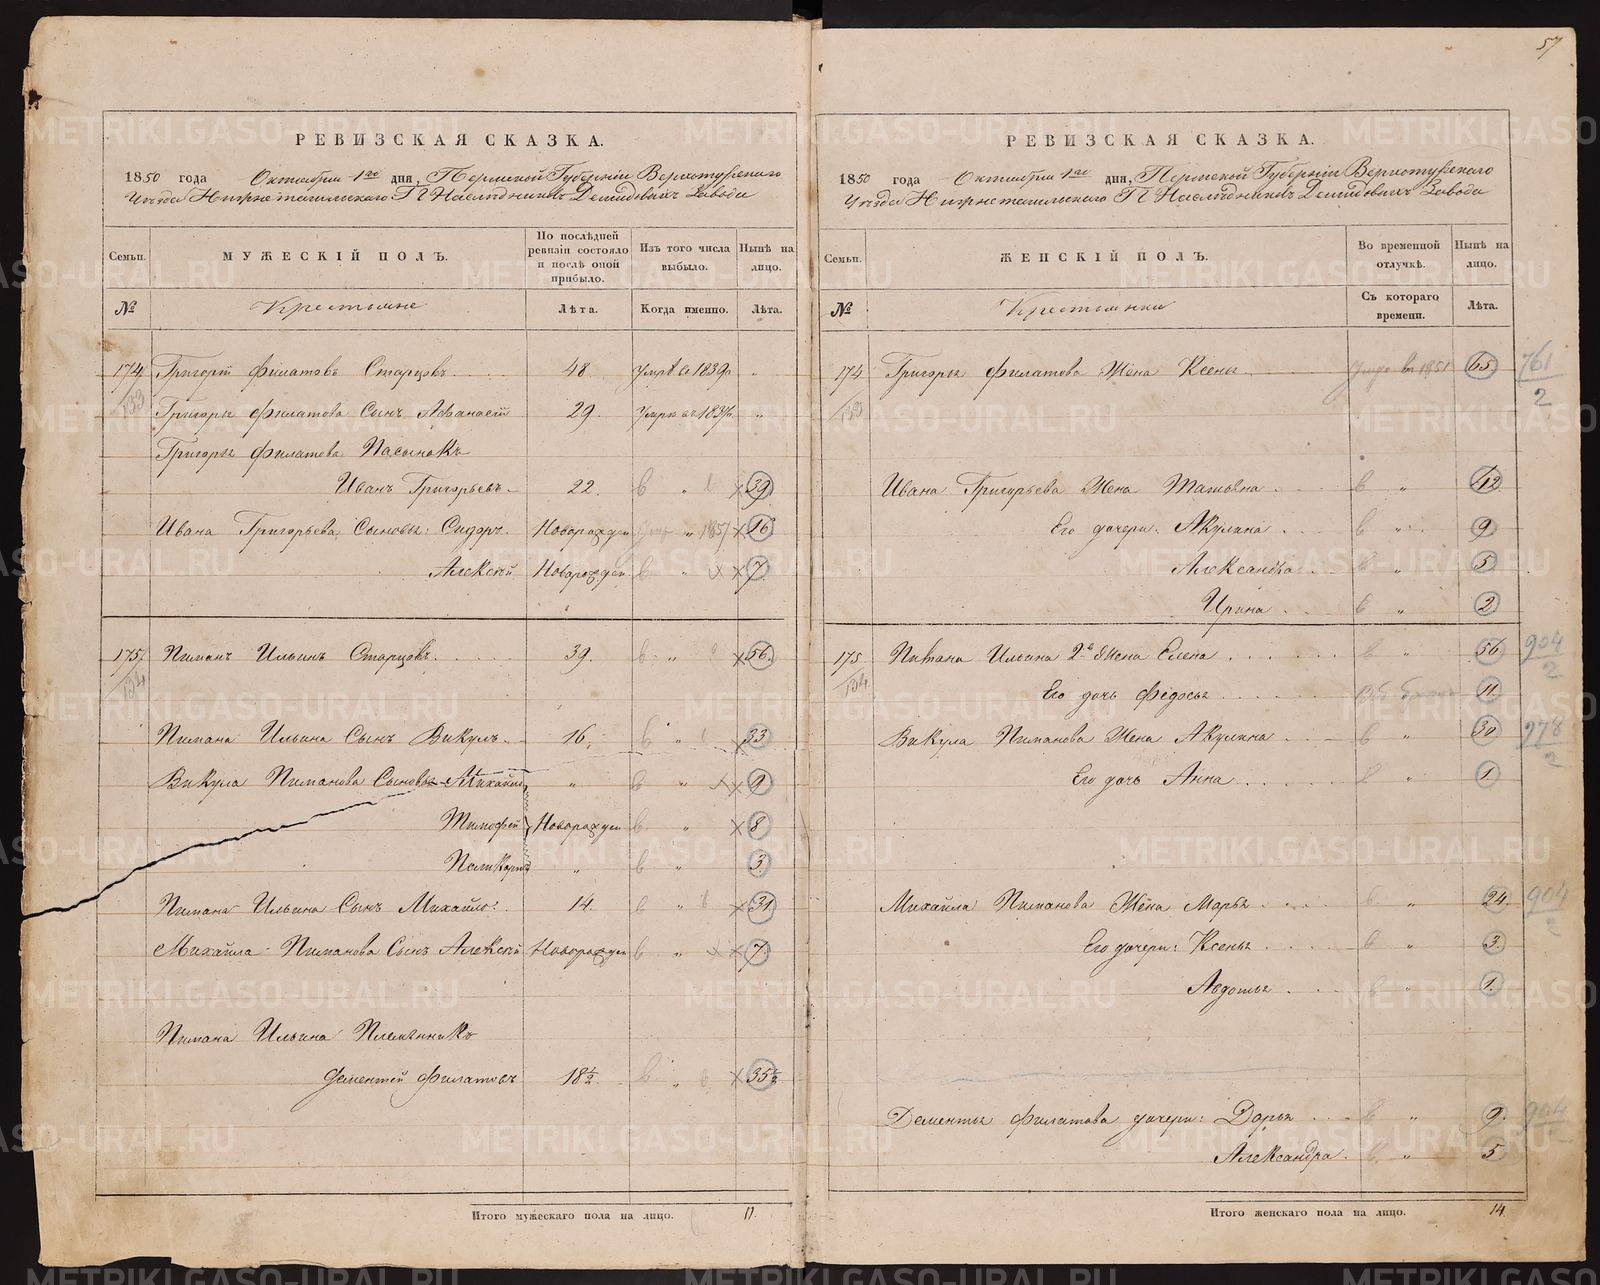 57
РЕВИЗСКАЯ СКАЗКА.
1850 года Октября 1го дня, Пермской Губерніи Верхотурскаго
Уѣзда Нижнетагильскаго Г.П. Наслѣдниковъ Демидовыхъ Завода
Семьи. МУЖЕСКІЙ ПОЛЪ. По послѣдней ревизіи состояло и послѣ оной прибыло. Изъ того числа выбыло. Нынѣ на лицо.
№ Крестьяне Лѣта. Когда именно. Лѣта.
174 Григорій Филатовъ Старцовъ 48 Умръ въ 1839 "
133
Григорья Филатова Сынъ Афанасій 29. Умръ въ 1837 "
Григорья Филатова Пасынокъ
Иванъ Григорьевъ 22. в " в × 39
Ивана Григорьева Сыновья: Сидоръ. Новорожден " 1851 × 16
Алексѣй Новорожден в " × × 7
175 Пиманъ Ильинъ Старцовъ. 39. в " × 56.
134
Пимана Ильина Сынъ Викулъ 16. в " × 33
Викула Пиманова Сыновья Михайло " в " × × 9
Тимофей Новорожден в " × 8
Поликарпъ " в " 3
Пимана Ильина Сынъ Михайло. 14. в " в × 31
Михайла Пиманова Сынъ Алексѣй Новорожден в " × × 7
Пимана Ильина Племянникъ
Дементей Филатовъ 18½ в " в × 35½
Итого мужескаго пола на лицо. 11.
РЕВИЗСКАЯ СКАЗКА.
1850 года Октября 1го дня, Пермской Губерніи Верхотурскаго
Уѣзда Нижнетагильскаго Г.П. Наслѣдниковъ Демидовыхъ Завода
Семьи. ЖЕНСКІЙ ПОЛЪ. Во временной отлучкѣ. Нынѣ на лицо.
№ Крестьянки Съ котораго времени. Лѣта.
174 Григорья Филатова Жена Ксенья въ 1851 65 761/2
133
Ивана Григорьева Жена Татьяна в " 42
Его дочери: Акулина в " 9
Александра в " 5
Ирина в " 2
175 Пимана Ильина 2я Жена Елена в " 56 904/2
134
Его дочь Федосья 11
Викула Пиманова Жена Акулина в " 30 978/2
Его дочь Анна в " 1
Михайла Пиманова Жена Марья в " 24 904/2
Его дочери: Ксенья в " 3
Авдотья в " 1
Дементья Филатова дочери: Дарья в " 9. 904
Александра. в " 5
Итого женскаго пола на лицо. 14.
METRIKI.GASO-URAL.RU